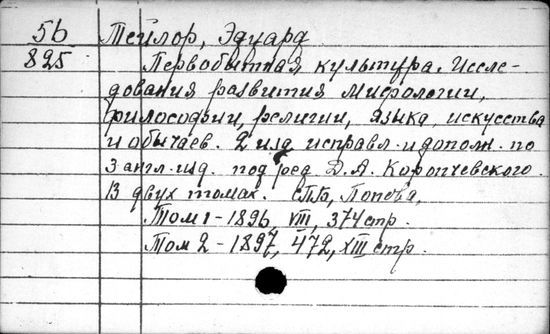 5б Тейлор, Эдуард
825 Первобытная культура. Иссле-
дования развития мифологии,
философии, религии, языка, искусства
и обычаев. 2 изд. исправл. и дополн. по
3 англ. изд. под ред. Д.А. Коропчевского.
В двух томах. СПб, Попова,
Том 1 - 1896, VIII, 374 стр.
Том 2 - 1897, 472, XIII стр.